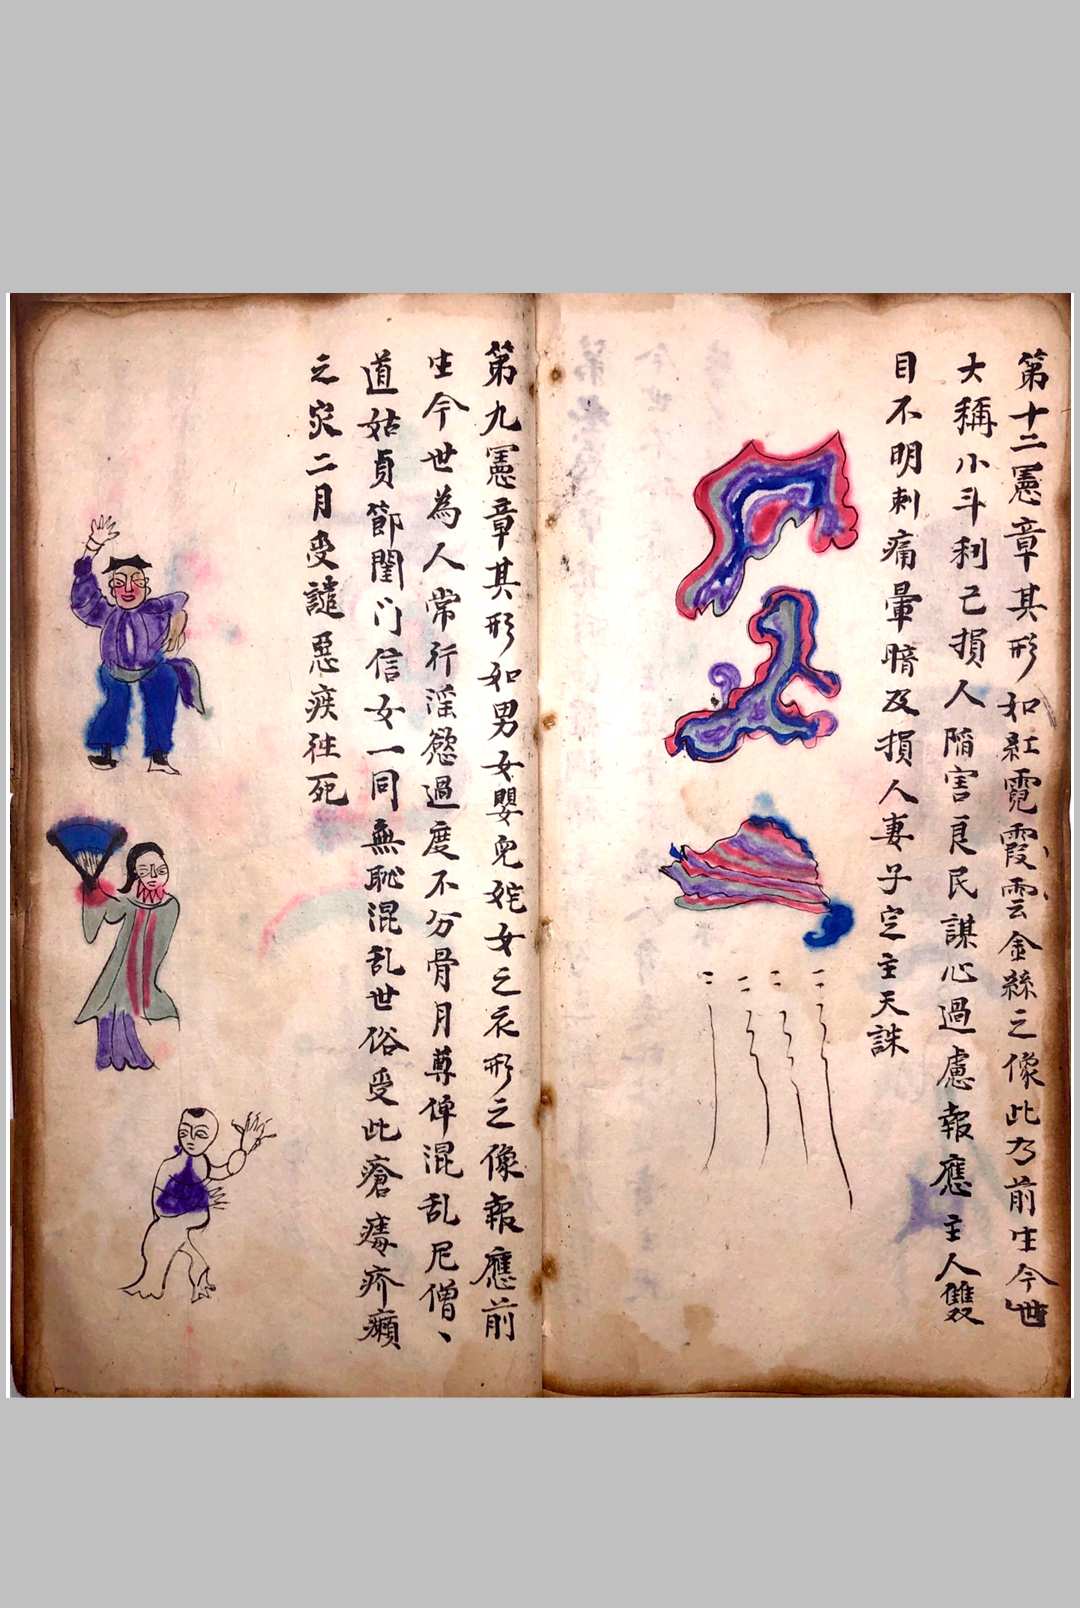 第十二憲章其形如紅霓霞雲金絲之像此乃前生今世
大稱小斗利己損人陷害良民謀心過慮報應主人雙
目不明刺痛暈暗及損人妻子定主天誅
第九憲章其形如男女嬰兒姹女之衣形之像報應前
生今世為人常行淫慾過度不分骨月尊俾混乱尼僧、
道姑貞節閨门信女一同無恥混乱世俗受此瘡痛疥癩
之灾二月受譴惡疾徃死